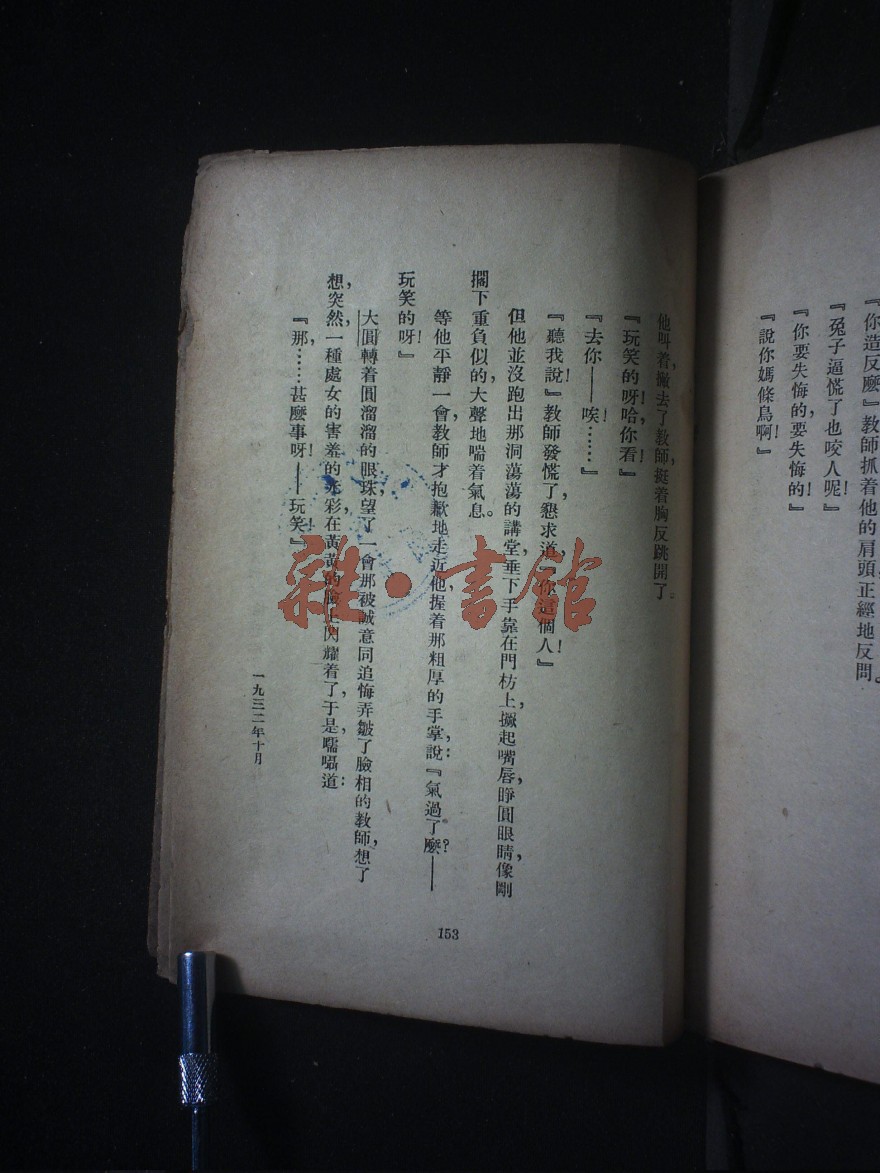 『你造反麽』教師抓着他的肩頭正經地反問。
『兔子逼慌了也咬人呢！』
『你要失悔的，要失悔的！』
『說你媽條鳥啊！』
他叫着撇去了教師，挺着胸反跳開了。
『玩笑的呀！哈，你看！』
『去你——唉！……』
『聽我說！』教師發慌了，懇求道，『你這個人！』
但他並沒跑出那洞蕩蕩的講堂，垂下手靠在門枋上，撅起嘴唇，睜圓眼睛，像剛
擱下重負似的，大聲地喘着氣息。
等他平靜一會，教師才抱歉地走近他，握着那粗厚的手掌，說：『氣過了麽？——
玩笑的呀！』
大圓轉着圓溜溜的眼珠，望了一會那被誠意同追悔弄皺了臉相的教師，想了
想，突然，一種處女的害羞的光彩在黃黃的臉上閃耀着了，于是，嚅囁道：
『那，……甚麽事呀！——玩笑！』
一九三二年十月
153
雜·書館